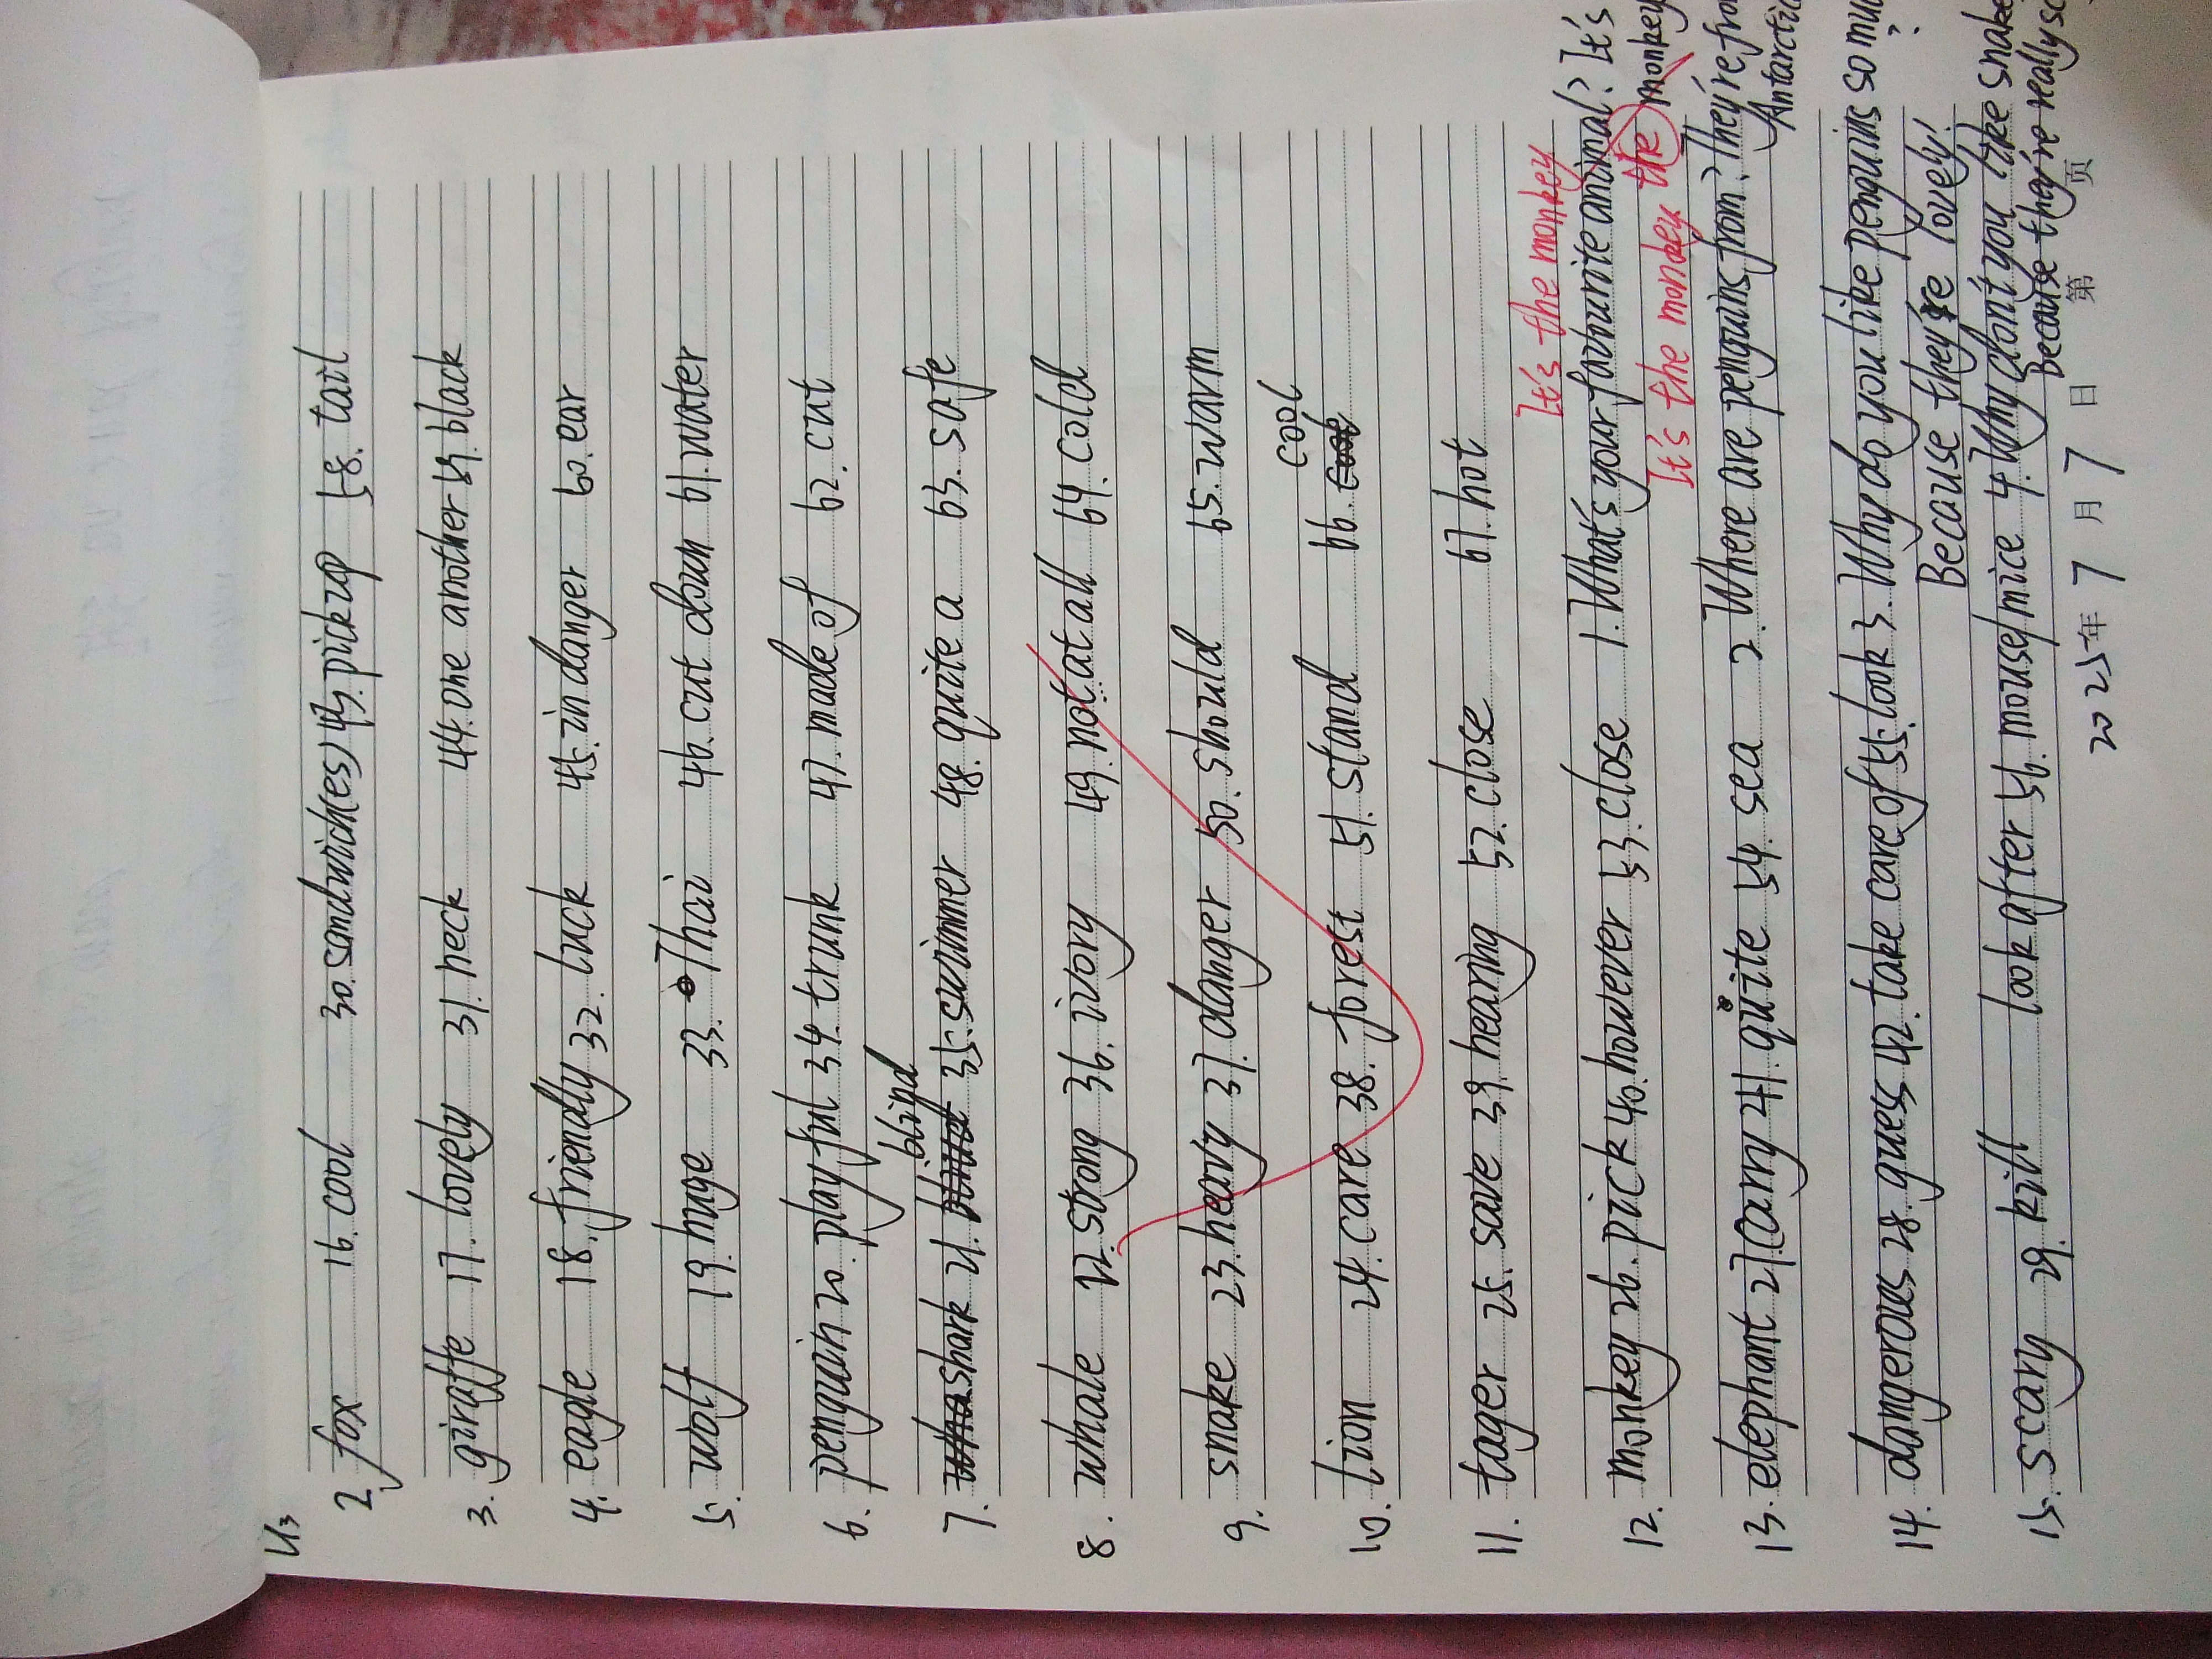 U3
2. fox 16. cool 30. sandwich(es) 43. pick up 58. tail
3. giraffe 17. lovely 31. neck 44. one another 59. black
4. eagle 18. friendly 32. luck 45. in danger 60. ear
5. wolf 19. huge 33. Thai 46. cut down 61. water
6. penguin 20. playful 34. trunk 47. made of 62. cut
blind
7. shark 21. 35. swimmer 48. quite a 63. safe
8. whale 22. strong 36. ivory 49. not...at all 64. cold
9. snake 23. heavy 37. danger 50. should 65. warm
cool
10. lion 24. care 38. forest 51. stand 66.
11. tager 25. save 39. hearing 52. close 67. hot
It's the monkey
12. monkey 26. pick 40. however 53. close 1. What's your favourite animal? It's
It's the monkey the the monkey
13. elephant 27. carry 41. quite 54. sea 2. Where are penguins from? They're from
Antarctic
14. dangerous 28. guess 42. take care of 55. look 3. Why do you like penguins so much
?
Because they're lovely!
15. scary 29. kill look after 56. mouse/mice 4. Why don't you like snake
Because they're really
2025年 7 月 7 日 第 页